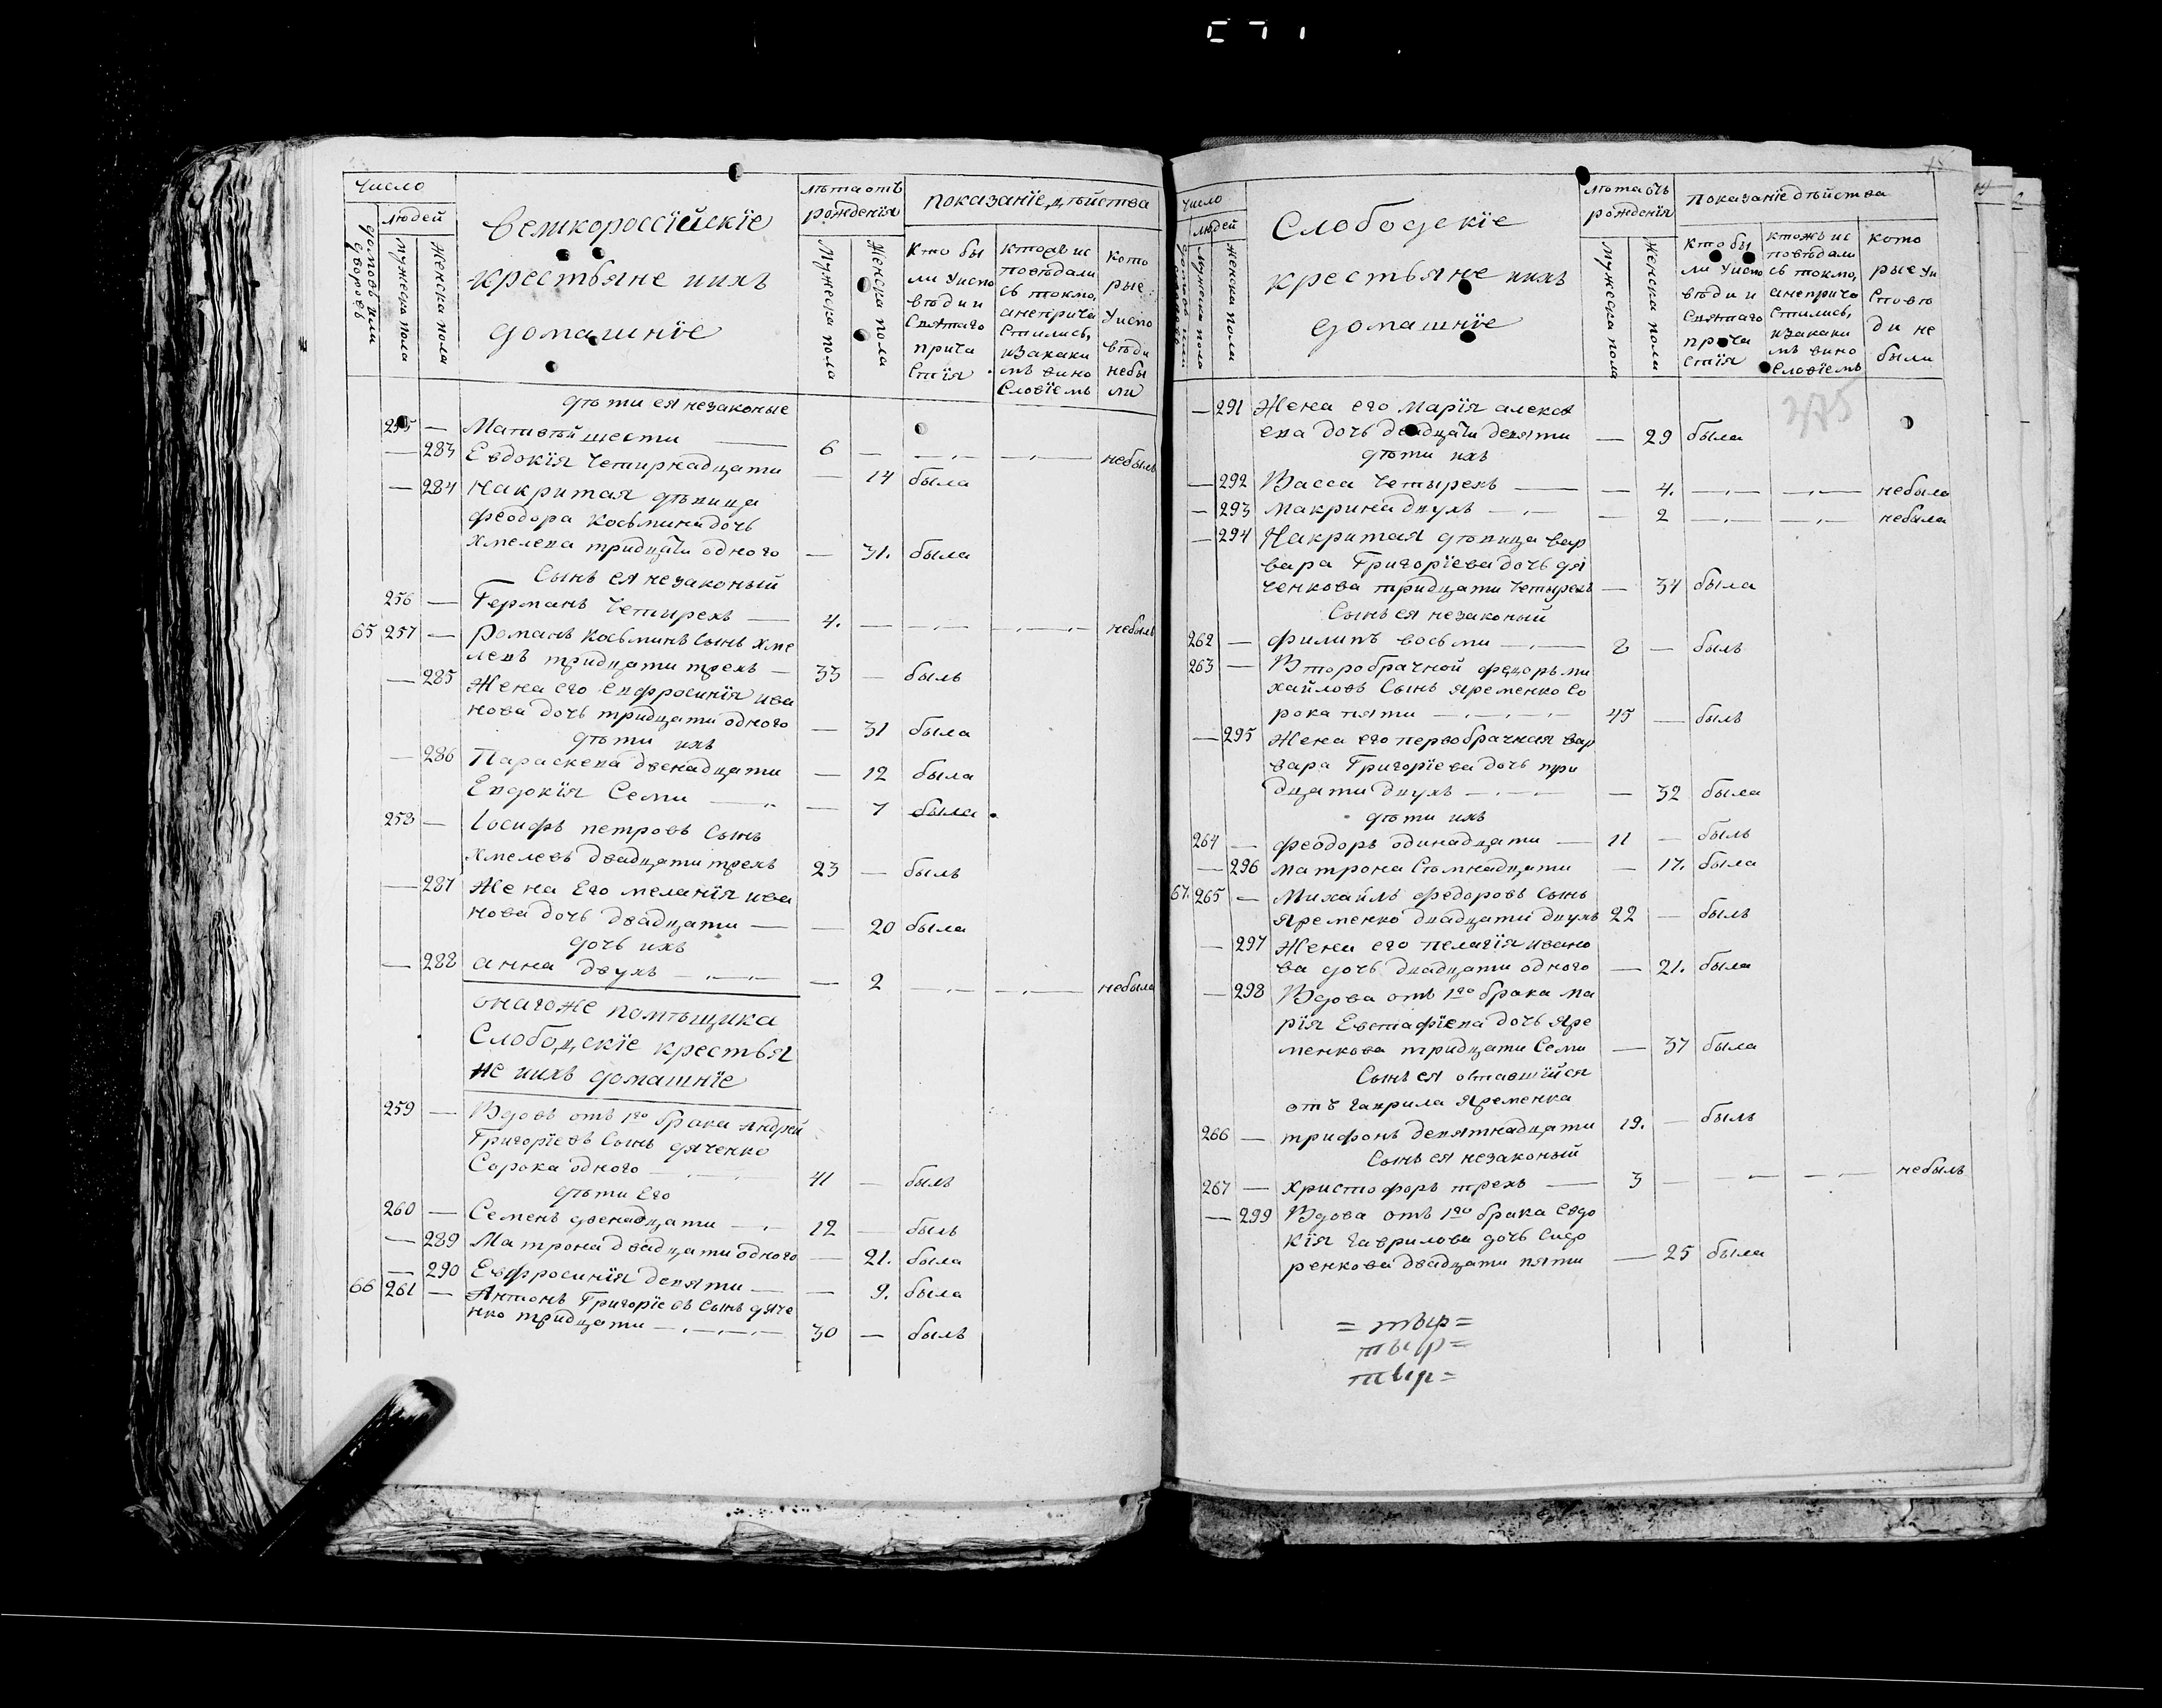 Число
людей
домовъ или дворовъ
мужеска пола
Женска пола
Великороссїйскїе
крестьяне ииxъ
домашнїе
лѣта отъ
рожденїя
Мужеска пола
Женска пола
показанїе дѣйства
Кто бы
ли Уиспо
вѣди и
Святаго
прича
Стїя
ктожъ ис
повѣдали
сь токмо,
анеприча
Стились,
изакаки
мъ вино
Словїемъ
кото
рые
Уиспо
вѣди
небы
ли
дѣти ея незаконые
255 — Матвѣй шести — 6 — небылъ
— 283 Евдокїя Четырнадцати — 14 была
— 284 накритая дѣвица
феодора Косьмина дочь
хмелева тридцати одного — 31. была
Сынъ ея незаконый
256 — Германъ Четырехъ — 4. — небылъ
65 257 — романъ Косьминъ Сынъ хме
левъ тридцати трехъ — 33 — былъ
— 285 Жена его Евфросинїя ива
нова дочь тридцати одного — 31 была
дѣти ихъ
— 286 Параскева двенадцати — 12 была
Евдокїя Семи — 7 была
258 — Іосифъ петровъ Сынъ
хмелевъ двадцати трехъ 23 — былъ
— 287 Жена Его меланїя ива
нова дочь двадцати — 20 была
дочь ихъ
— 288 анна двухъ — 2 — небыла
онагоже помѣщика
Слободскїе крестья
не ииxъ домашнїе
259 — Вдовъ отъ 1го брака Андрей
Григорїевъ Сынъ дяченко
Сорока одного — 41 — былъ
дѣти Его
260 — Семенъ двенадцати — 12 — былъ
— 289 Матрона двадцати одного — 21. была
— 290 Евфросинїя девяти — 9. была
66 261 — Антонъ Григорїевъ Сынъ дяче
нко тридцати — 30 — былъ
Число
людей
мужеска пола
Женска пола
Слободскїе
крестьяне ииxъ
домашнїе
лѣта отъ
рожденїя
Мужеска пола
Женска пола
показанїе дѣйства
Кто бы
ли Уиспо
вѣди и
Святаго
прича
стїя
ктожъ ис
повѣдали
сь токмо,
анеприча
Стились,
изакаки
мъ вино
Словїемъ
кото
рые Уи
Сповѣ
ди не
были
375
— 291 Жена его Марїя алексѣ
ева дочь двадцати девяти — 29 была
дѣти ихъ
— 292 Васса Четырехъ — 4. — небыла
— 293 Макрина двухъ — 2 — небыла
— 294 Накритая дѣвица вар
вара Григорїева дочь дя
ченкова тридцати Четырехъ — 34 была
Сынъ ея незаконый
262 — филипъ восьми — 8 — былъ
263 — Второбрачной федоръ ми
хайловъ Сынъ яременко Со
рока пяти — 45 — былъ
— 295 Жена его первобрачная вар
вара Григорїева дочь три
дцати двухъ — 32 была
дѣти ихъ
264 — феодоръ одинадцати — 11 — былъ
— 296 матрона Семнадцати — 17. была
67. 265 — Михайлъ федоровъ Сынъ
яременко двадцати двухъ 22 — былъ
— 297 Жена его пелагїя ивано
ва дочь двадцати одного — 21. была
— 298 Вдова отъ 1го брака ма
рїя Евстафїева дочь яре
менкова тридцати Семи — 37 была
Сынъ ея оставшїйся
отъ гаврила яременка
266 — трифонъ девятнадцати 19. — былъ
Сынъ ея незаконый
267 — христофоръ трехъ — 3 — небылъ
— 299 Вдова отъ 1го брака евдо
кїя гаврилова дочь Сидо
ренкова двадцати пяти — 25 была